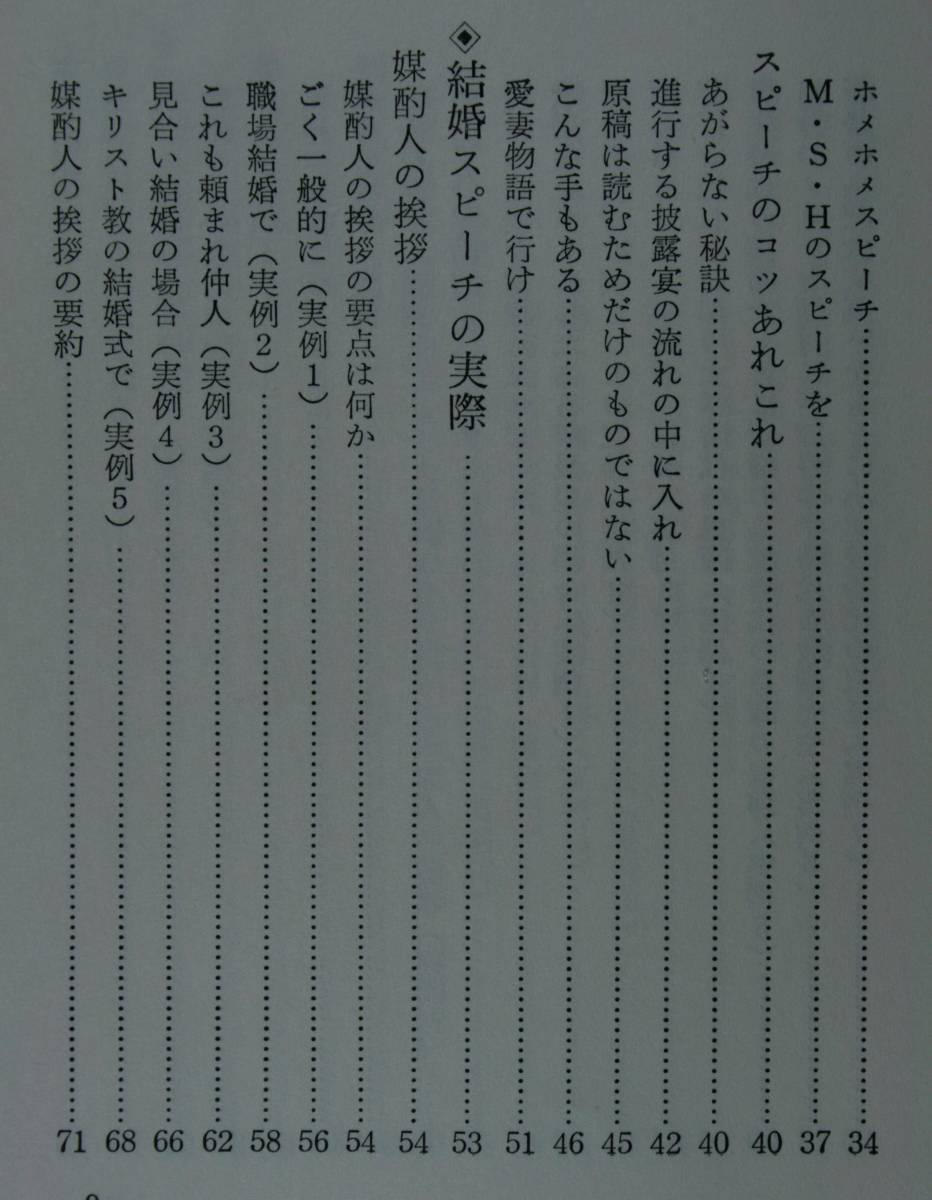 ホメホメスピーチ……34
M・S・Hのスピーチを……37
スピーチのコツあれこれ……40
あがらない秘訣……40
進行する披露宴の流れの中に入れ……42
原稿は読むためだけのものではない……45
こんな手もある……46
愛妻物語で行け……51
◈結婚スピーチの実際……53
媒酌人の挨拶……54
媒酌人の挨拶の要点は何か……54
ごく一般的に（実例1）……56
職場結婚で（実例2）……58
これも頼まれ仲人（実例3）……62
見合い結婚の場合（実例4）……66
キリスト教の結婚式で（実例5）……68
媒酌人の挨拶の要約……71